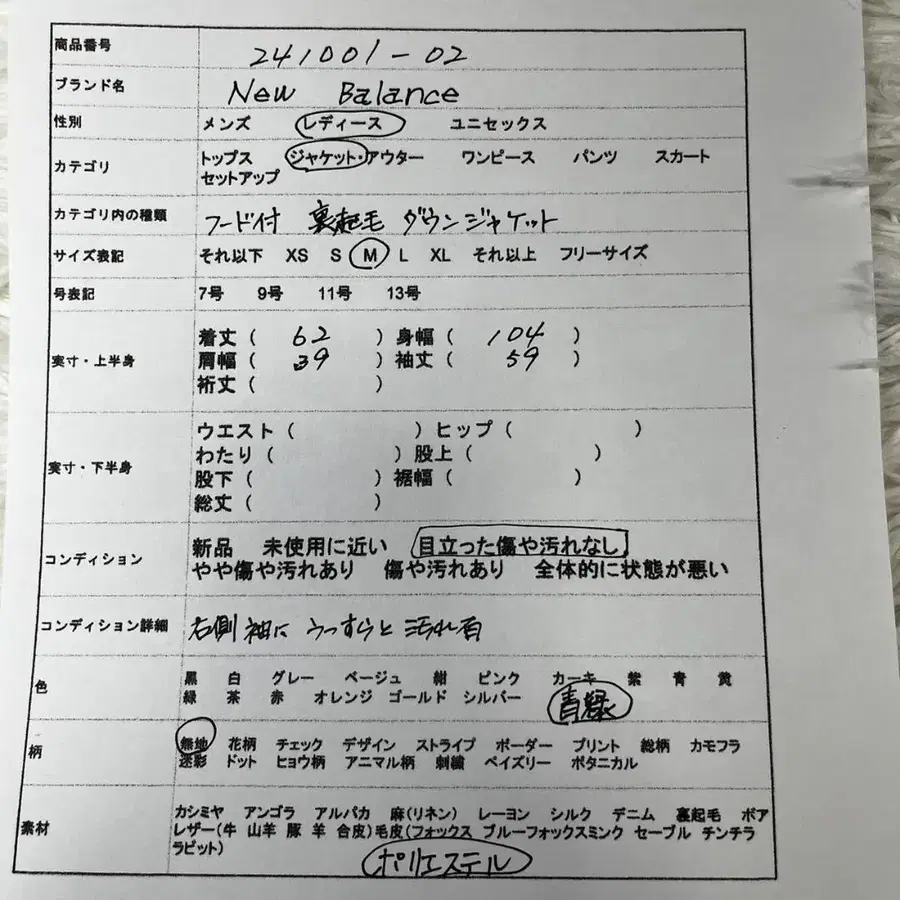 商品番号 241001-02
ブランド名 New Balance
性別 メンズ レディース ユニセックス
カテゴリ トップス ジャケット・アウター ワンピース パンツ スカート
セットアップ
カテゴリ内の種類 フード付 裏起毛 ダウンジャケット
サイズ表記 それ以下 XS S M L XL それ以上 フリーサイズ
号表記 7号 9号 11号 13号
着丈 ( 62 ) 身幅 ( 104 )
実寸・上半身 肩幅 ( 39 ) 袖丈 ( 59 )
裄丈 ( )
ウエスト ( ) ヒップ ( )
わたり ( ) 股上 ( )
実寸・下半身 股下 ( ) 裾幅 ( )
総丈 ( )
コンディション 新品 未使用に近い 目立った傷や汚れなし
やや傷や汚れあり 傷や汚れあり 全体的に状態が悪い
コンディション詳細 右側 袖に うっすらと 汚れ有
色 黒 白 グレー ベージュ 紺 ピンク カーキ 紫 青 黄
緑 茶 赤 オレンジ ゴールド シルバー 青緑
柄 無地 花柄 チェック デザイン ストライプ ボーダー プリント 総柄 カモフラ
迷彩 ドット ヒョウ柄 アニマル柄 刺繍 ペイズリー ボタニカル
素材 カシミヤ アンゴラ アルパカ 麻(リネン) レーヨン シルク デニム 裏起毛 ボア
レザー(牛 山羊 豚 羊 合皮)毛皮(フォックス ブルーフォックスミンク セーブル チンチラ
ラビット)
ポリエステル